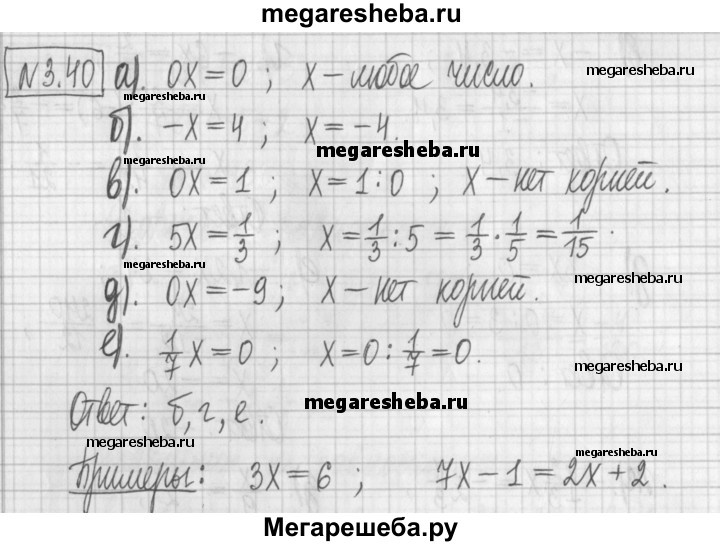 megaresheba.ru
№3.40 а). 0X=0 ; X – любое число. megaresheba.ru
megaresheba.ru
б). –X=4 ; X=–4.
megaresheba.ru megaresheba.ru
в). 0X=1 ; X=1:0 ; X – нет корней.
г). 5X=1/3 ; X=1/3:5=1/3·1/5=1/15.
megaresheba.ru megaresheba.ru
д). 0X=–9 ; X – нет корней.
megaresheba.ru
е). 1/7X=0 ; X=0:1/7=0.
megaresheba.ru
Ответ: б, г, е. megaresheba.ru
megaresheba.ru megaresheba.ru
Примеры: 3X=6 ; 7X–1=2X+2.
Мегарешеба.ру